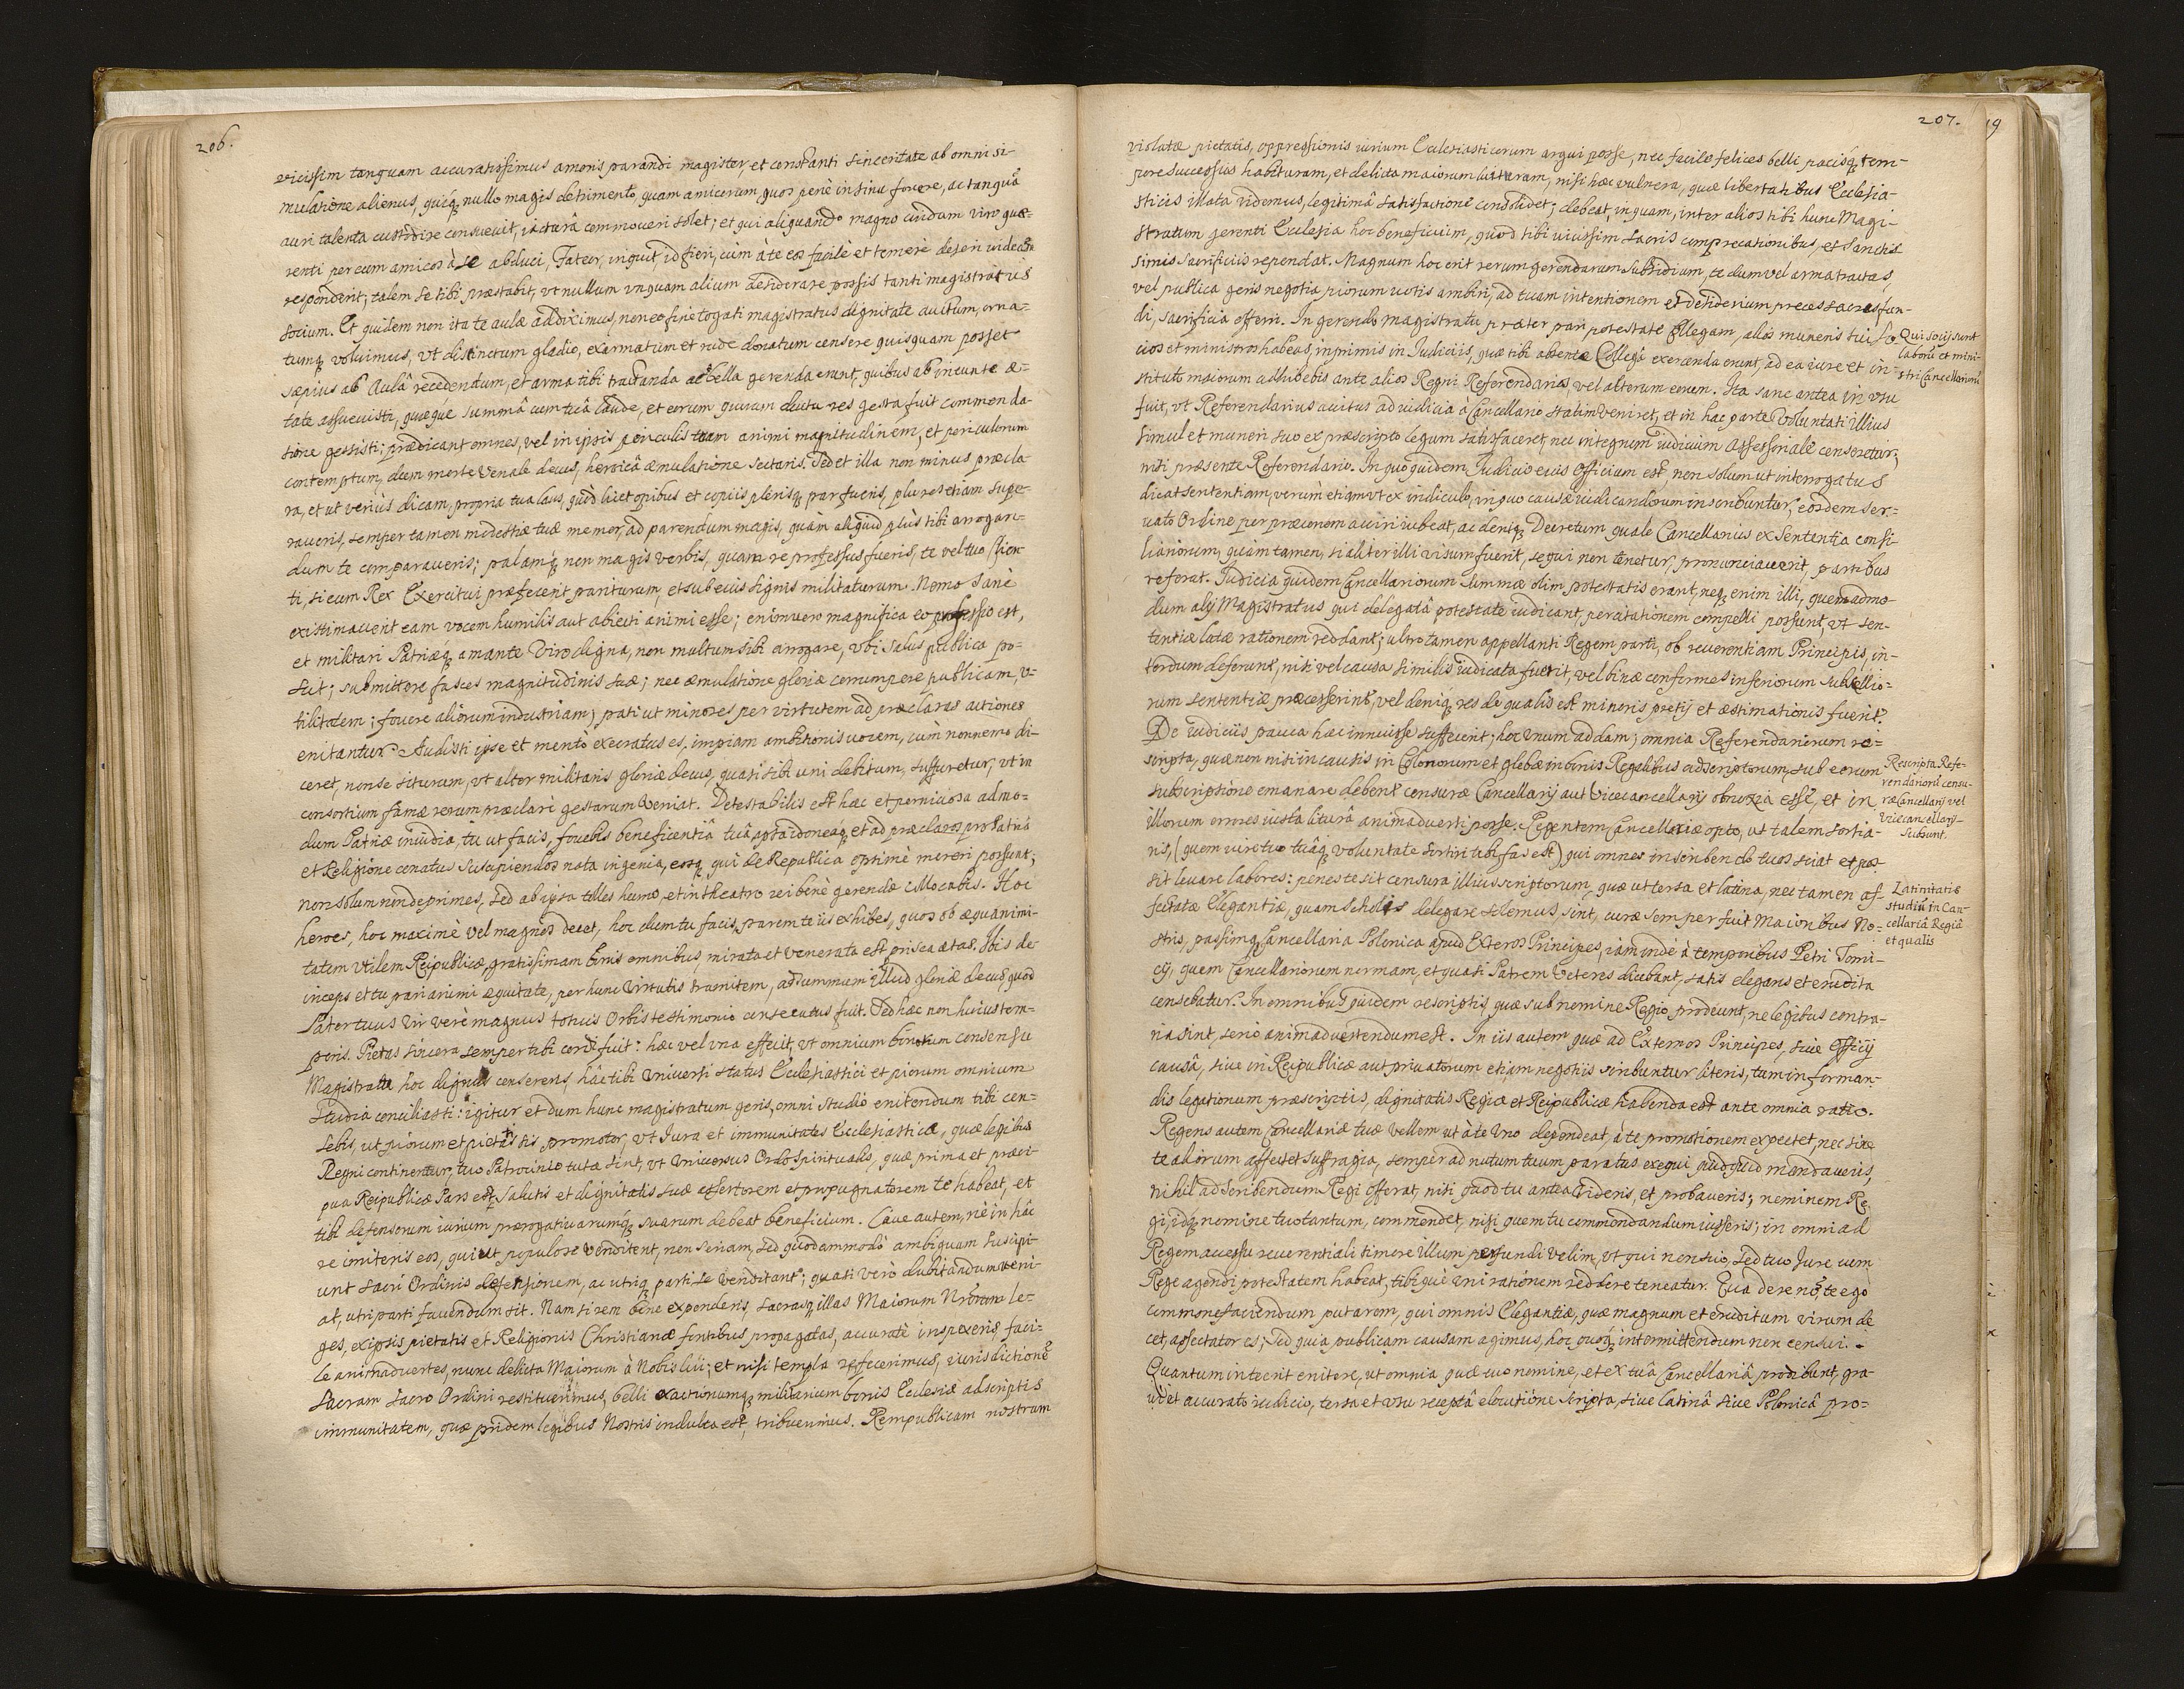 206.
vicissim tanquam accuratissimus amoris parandi magister, et constanti sinceritate ab omni si-
mulatione alienus, quiq nullo magis detrimento, quam amicorum, quos penè in sinu fovere, ac tanquã
auri talenta custodire consuevit, iacturâ commoveri solet; et qui aliquando magno cuidam viro quæ-
renti per eum amicos à se abduci, Fateor, inquit, id fieri, cùm à te eos facilè et temerè deseri videam
respondent; talem se tibi præstabit, vt nullum vnquam alium desiderare possis tanti magistratus
socium. Et quidem non ita te aulæ addiximus, non eo fine togati magistratus dignitate auctum, orna-
tumq voluimus, vt distinctum gladio, exarmatum et rude donatum censere quisquam posset
sæpius ab Aulâ recedendum, et arma tibi tractanda ac bella gerenda erunt, quibus ab ineunte æ-
tate assuevisti, quæque summâ cum tuâ laude, et eorum quorum ductu res gesta fuit commenda-
tione gessisti; prædicant omnes, vel in ipsis periculis tuam animi magnitudinem, et periculorum
contemptum, dum morte venale decus, heroicâ æmulatione sectaris. Sed et illa non minus præcla-
ra, et ut verius dicam, propria tua laus, quòd licet opibus et copiis plerisq par fueris, plures etiam supe-
raveris, semper tamen modestiæ tuæ memor, ad parendum magis, quàm aliquid plùs tibi arrogan-
dum te comparaveris; palamq non magis verbis, quam re professus fueris, te vel tuo clien-
ti, si eum Rex Exercitui præfecerit pariturum, et sub eius signis militaturum. Nemo sanè
existimaverit eam vocem humilis aut abiecti animi esse; enimvero magnifica eo professio est,
et militari Patriæq amante Viro digna, non multum sibi arrogare, vbi salus publica po-
scit; submittere fasces magnitudinis suæ; nec æmulatione gloriæ corrumpere publicam, v-
tilitatem; fovere aliorum industriam, pati ut minores per virtutem ad præclaras actiones
enitantur. Audisti ipse et meritò execratus es, impiam ambitionis vocem, cùm nonnemo di-
ceret, non se siturum, vt alter militaris gloriæ decus, quasi sibi uni debitum, suffuretur, vt in
consortium famæ rerum præclarè gestarum veniat. Detestabilis est hæc et perniciosa admo-
dum Patriæ invidia; tu ut facis, fovebis beneficentiâ tuâ apta idoneaq et ad præclaros pro Patriâ
et Religione conatus suscipiendos nata ingenia, eosq qui de Republica optimè mereri possunt;
non solum non deprimes, sed ab ipsa tolles humo, et in theatro rei benè gerendæ collocabis. Hoc
heroes, hoc maximè vel magnos decet, hoc dum tu facis, parem te iis exhibes, quos ob æquanimi-
tatem vtilem Reipublicæ, gratissimam bonis omnibus, mirata et venerata est prisca ætas. Ibis de-
inceps et tu pari animi æquitate, per hunc virtutis tramitem, ad summum illud gloriæ decus, quod
Pater tuus Vir verè magnus totius Orbis testimonio consecutus fuit. Sed hæc non huius tem-
poris. Pietas sincera semper tibi cordi fuit: hæc vel vna effecit, vt omnium bonorum consensu
Magistratu hoc dignus censereris, hâc tibi vniversi status Ecclesiastici et piorum omnium
studia conciliasti: igitur et dum hunc magistratum geris, omni studio enitendum tibi cen-
sebis, ut piorum et pietatis sis promotor, vt Jura et immunitates Ecclesiasticæ, quæ legibus
Regni continentur, tuo Patrocinio tutæ sint, vt Vniversus Ordo Spiritualis, quæ prima et præci-
pua Reipublicæ Pars est, salutis et dignitatis suæ assertorem et propugnatorem te habeat, et
tibi defensorum iurium, prærogativarumq suarum debeat beneficium. Cave autem, nè in hâc
re imiteris eos, qui ut populo se venditent, non seriam, sed quodammodò ambiguam suscipi-
unt sacri Ordinis defensionem, ac utriq parti se venditant; quasi verò dubitandum veni-
at, utri parti favendum sit. Nam si rem bene expenderis, sacrasq illas Maiorum Nrorum le-
ges, ex ipsis pietatis et Religionis Christianæ fontibus propagatas, accuratè inspexeris faci-
le animadvertes, nunc delicta Maiorum à Nobis lui; et nisi templa refecerimus, iurisdictionẽ
sacram sacro Ordini restituerimus, belli exactionumq militarium bonis Ecclesiæ adscriptis
immunitatem, quæ pridem legibus Nostris indulta est, tribuerimus. Rempublicam nostram
207.
19
violatæ pietatis, oppressionis iurium Ecclesiasticorum argui posse, nec facile felices belli pacisq tem-
pore successus habituram, et delicta maiorum luituram, nisi hæc vulnera, quæ libertatibus Ecclesia-
sticis illata videmus, legitimâ satisfactione consolidet; debeat, inquam, inter alios tibi hunc Magi-
stratum gerenti Ecclesia hoc beneficium, quod tibi vicissim sacris comprecationibus, et Sanctis-
simis sacrificiis rependat. Magnum hoc erit rerum gerendarum subsidium, te dum vel arma tractas,
vel publica geris negotia piorum votis ambiri, ad tuam intentionem et desiderium preces sacras fun-
di, sacrificia offerri. In gerendo magistratu præter pari potestate Collegam, alios muneris tui so-
cios et ministros habeas, inprimis in Judiciis, quæ tibi absente Collegâ exercenda erunt, ad ea iure et in-
stituto maiorum adhibebis ante alios Regni Referendarios, vel alterum eorum. Ita sanè antea in vsu
fuit, vt Referendarius accitus ad iudicia à Cancellario statim veniret, et in hac parte voluntati illius
simul et muneri suo ex præscripto legum satisfaceret, nec integrum iudicium Assessoriale censeretur,
nisi præsente Referendario. In quo quidem Judicio eius Officium est, non solum ut interrogatus
dicat sententiam, verùm etiam vt ex indiculo, in quo causæ iudicandorum inscribuntur, eosdem ser-
vato Ordine per præconem acciri iubeat, ac deniq Decretum quale Cancellarius ex sententia consi-
liariorum, quàm tamen, si aliter illi visum fuerit, sequi non tenetur, pronunciaverit, partibus
referat. Judicia quidem Cancellariorum summæ olim potestatis erant, neq enim illi, quemadmo-
dum alij Magistratus qui delegatâ potestate iudicant, per citationem compelli possunt, vt sen-
tentiæ latæ rationem reddant; ultro tamen appellanti Regem parti, ob reverentiam Principis, in-
terdum deferunt, nisi vel causa similis iudicata fuerit, vel binæ conformes inferiorum subsellio-
rum sententiæ præcesserint, vel deniq res de qua lis est minoris pretij et æstimationis fuerit.
De iudiciis pauca hæc innuisse suffecerit; hoc vnum addam; omnia Referendariorum re-
scripta, quæ non nisi in causis in Colonorum et glebæ in bonis Regalibus adscriptorum, sub eorum
subscriptione emanare debent censuræ Cancellarij aut Vicecancellarij obnoxia esse, et in
illorum errores iusta liturâ animadverti posse. Regentem Cancellariæ opto, ut talem sortia-
ris, (quem iure tuo tuâq voluntate sortiri tibi fas est) qui omnes in scribendo tuos sciat et pos-
sit levare labores: penes te sit censura illius scriptorum, quæ ut tersa et latina, nec tamen af-
fectatæ Elegantiæ, quam scholis delegare solemus, sint, curæ semper fuit Maioribus No-
stris, passimq Cancellaria Polonica apud Exteros Principes, iam inde à temporibus Petri Tomi-
cij, quem Cancellariorum normam, et quasi Patrem Veteres dicebant, satis elegans et erudita
censebatur. In omnibus quidem rescriptis, quæ sub nomine Regio prodeunt, ne legibus contra-
ria sint, serio animadvertendum est. In iis autem quæ ad Externos Principes, sive Officij
causâ, sive in Reipublicæ aut privatorum etiam negotiis scribuntur literis, tum in forman-
dis legationum præscriptis, dignitatis Regiæ et Reipublicæ habenda est ante omnia ratio.
Regens autem Cancellariæ tuæ vellem ut à te vno dependeat, à te promotionem expectet, nec sine
te aliorum affectet suffragia, semper ad nutum tuum paratus exequi quidquid mandaveris,
nihil ad scribendum Regi offerat, nisi quod tu antea videris, et probaveris; neminem Re-
gi, idq nomine tuo tantum, commendet, nisi quem tu commendandum iusseris; in omni ad
Regem accessu reverentiali timore illum perfundi velim, vt qui non suo, sed tuo Jure cum
Rege agendi potestatem habeat, tibiquè vni rationem reddere teneatur. Qua de re nõ te ego
commonefaciendum putarem, qui omnis Elegantiæ, quæ magnum et eruditum virum de-
cet, affectator es; sed quia publicam causam agimus, hoc quoq intermittendum non censui.
Quantum in te erit enitere, ut omnia quæ tuo nomine, et ex tuâ Cancellariâ prodibunt, gra-
vi et accurato iudicio, tersa et vsu receptâ elocutione scripta, sive Latinâ sive Polonicâ pro-
Qui socij sunt
laborũ et mini-
stri Cancellariorũ
Rescripta Refe-
rendariorũ censu-
ræ Cancellarij vel
Vicecancellarij
subsunt.
Latinitatis
studiũ in Can-
cellariâ Regiâ
et qualis